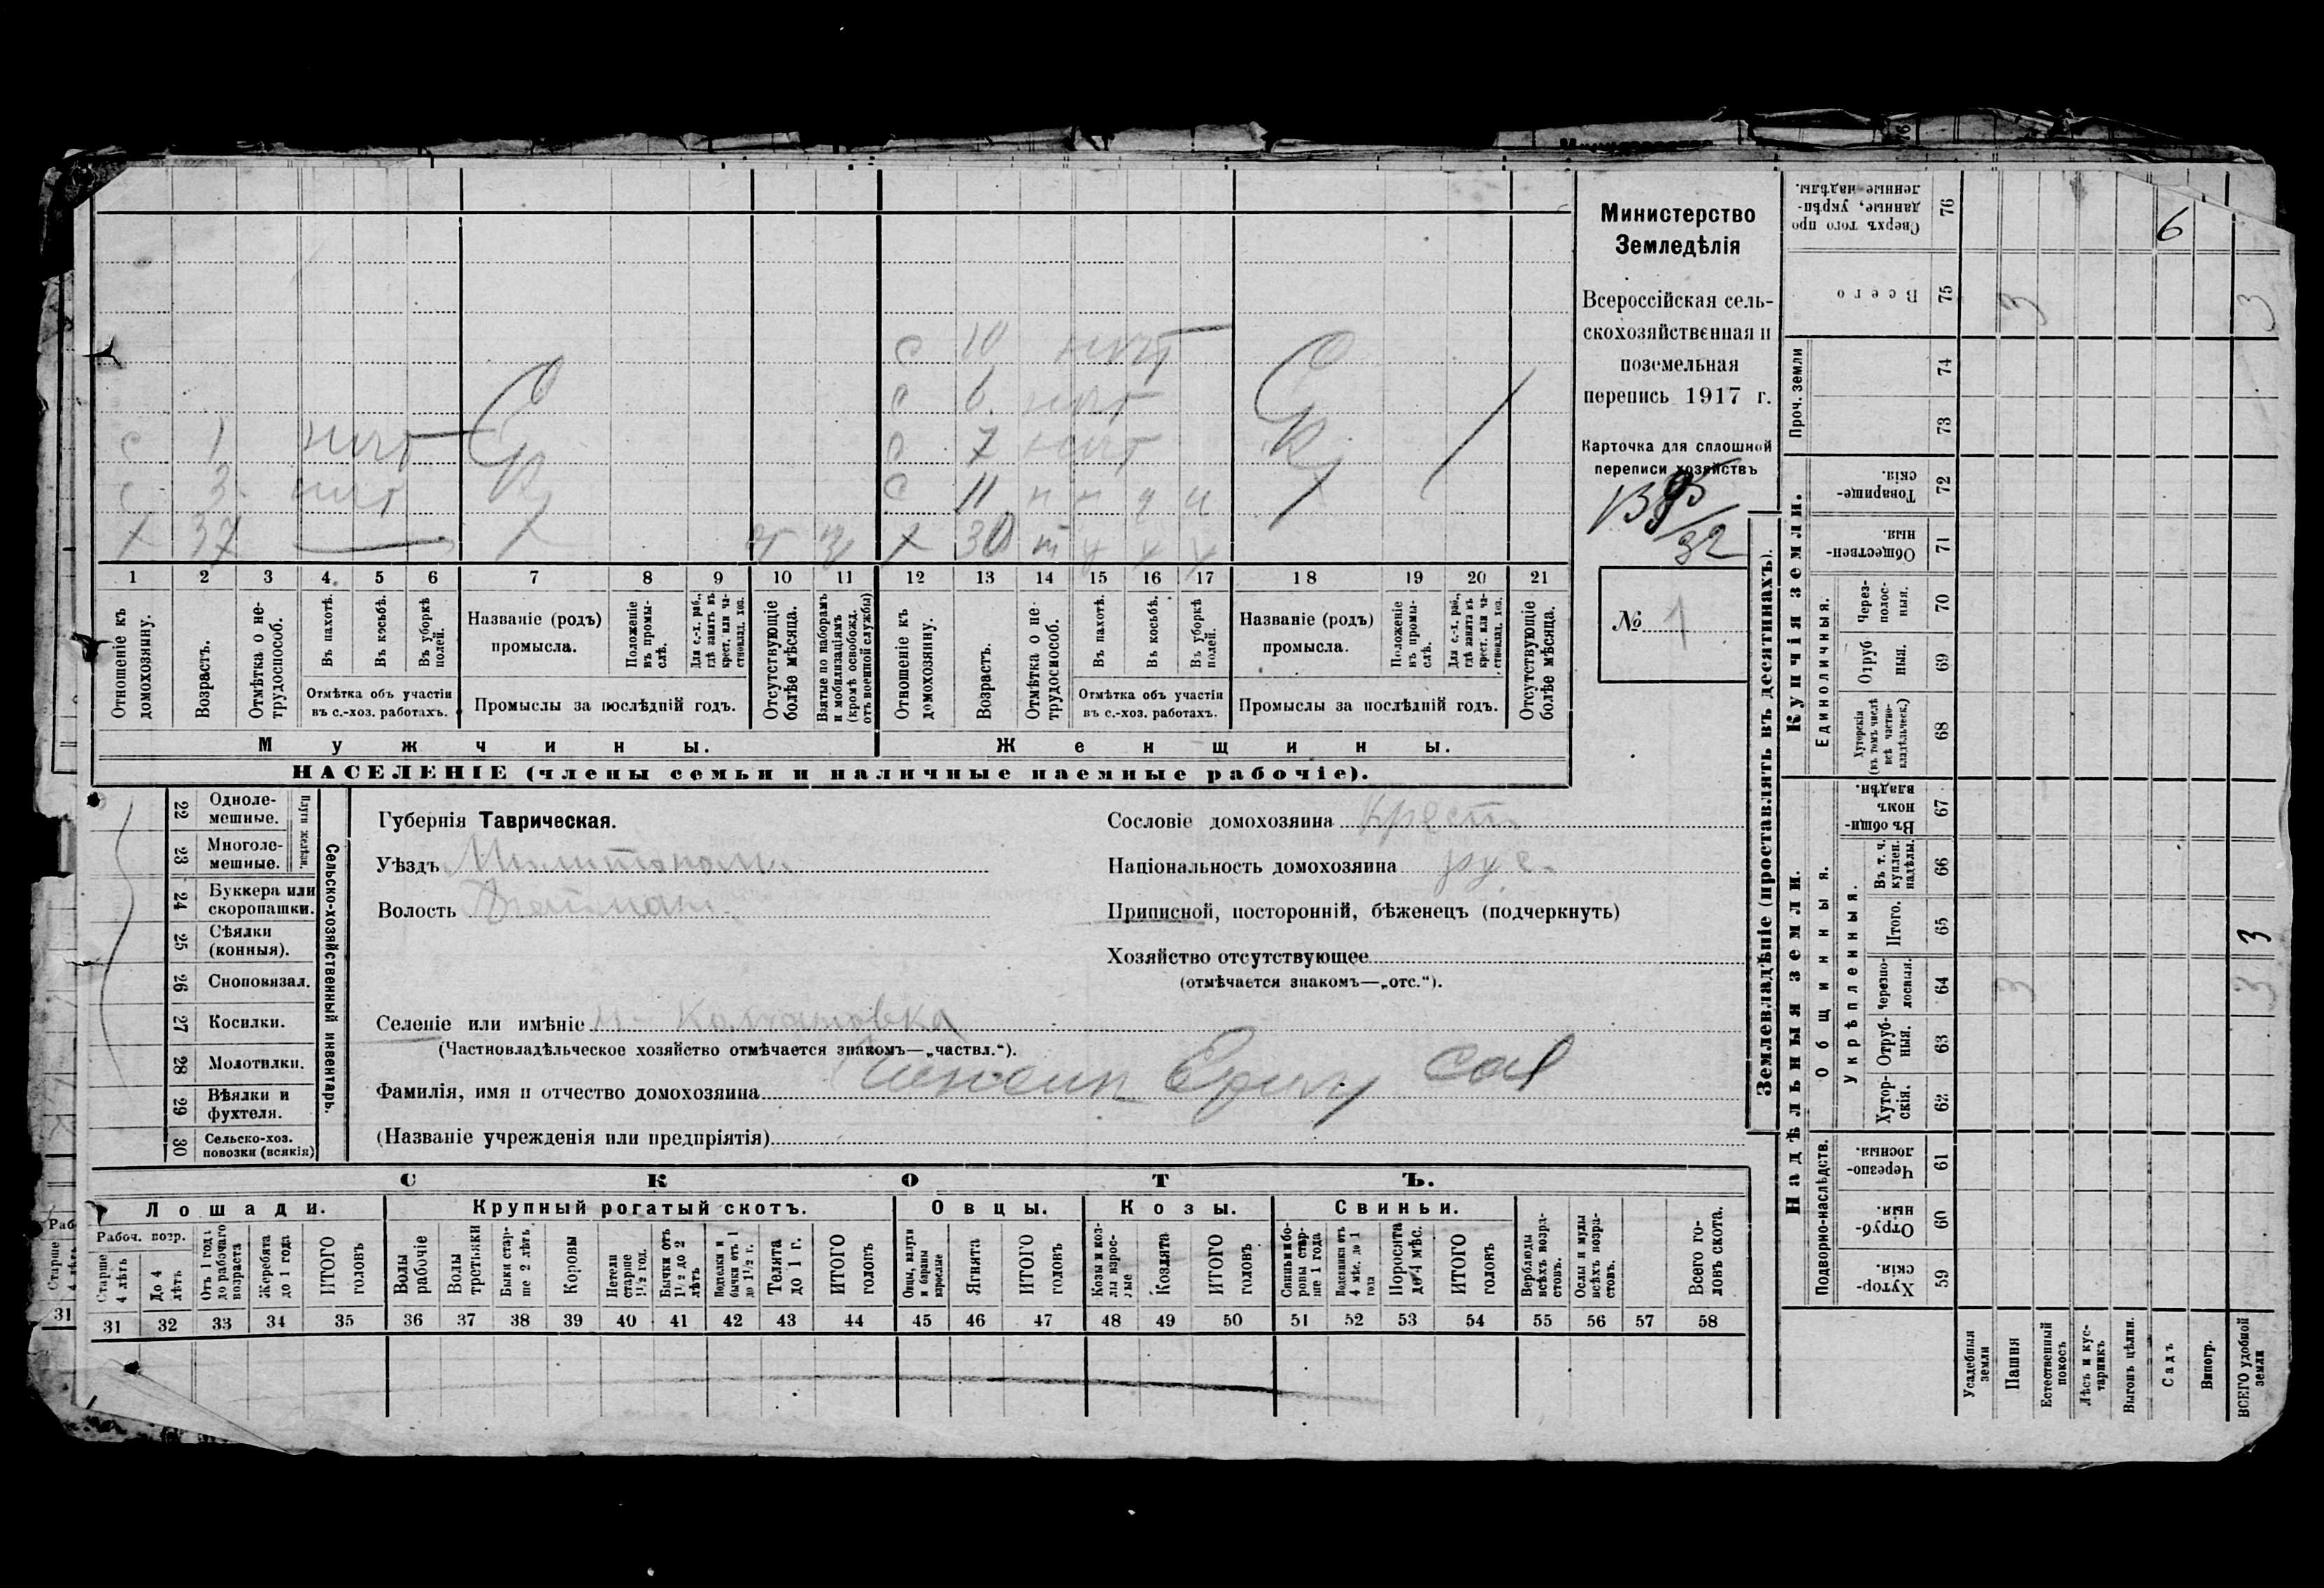 Министерство
Земледѣлія
Всероссійская сель-
скохозяйственная и
поземельная
перепись 1917 г.
Карточка для сплошной
переписи хозяйствъ
32
№ 1
с 10 нѣт
с 6 нѣт
с 1 нѣт с 7 нѣт
с 3 нѣт с 11 н н
х 37 х 30
1 2 3 4 5 6 7 8 9 10 11 12 13 14 15 16 17 18 19 20 21
Отношеніе къ домохозяину.
Возрастъ.
Отмѣтка о не-трудоспособ.
Въ пахотѣ.
Въ косьбѣ.
Въ уборкѣ полей.
Отмѣтка объ участіи
въ с.-хоз. работахъ.
Названіе (родъ)
промысла.
Положеніе въ промы-слѣ.
Для с.-х. раб., гдѣ занятъ въ крест. или ча-стновлад. хоз.
Промыслы за послѣдній годъ.
Отсутствующіе болѣе мѣсяца.
Взятые по наборамъ и мобилизаціямъ (кромѣ освобожд. отъ военной службы)
Отношеніе къ домохозяину.
Возрастъ.
Отмѣтка о не-трудоспособ.
Въ пахотѣ.
Въ косьбѣ.
Въ уборкѣ полей.
Отмѣтка объ участіи
въ с.-хоз. работахъ.
Названіе (родъ)
промысла.
Положеніе въ промы-слѣ.
Для с.-х. раб., гдѣ занята въ крест. или ча-стновлад. хоз.
Промыслы за послѣдній годъ.
Отсутствующіе болѣе мѣсяца.
Мужчины. Женщины.
НАСЕЛЕНІЕ (члены семьи и наличные наемные рабочіе).
22 Одноле-мешные.
23 Многоле-мешные.
Плуги желѣзн.
24 Буккера или скоропашки.
25 Сѣялки (конныя).
26 Сноповязал.
27 Косилки.
28 Молотилки.
29 Вѣялки и фухтеля.
30 Сельско-хоз. повозки (всякія)
Сельско-хозяйственный инвентарь.
Губернія Таврическая.
Уѣздъ Мелитополь.
Волость
Селеніе или имѣніе
(Частновладѣльческое хозяйство отмѣчается знакомъ—„частвл.“).
Фамилія, имя и отчество домохозяина
(Названіе учрежденія или предпріятія)
Сословіе домохозяина крест.
Національность домохозяина рус.
Приписной, посторонній, бѣженецъ (подчеркнуть)
Хозяйство отсутствующее
(отмѣчается знакомъ—„отс.“).
СКОТЪ.
Лошади. Крупный рогатый скотъ. Овцы. Козы. Свиньи.
Рабоч. возр.
Старше 4 лѣтъ
До 4 лѣтъ
Отъ 1 года до рабочаго возраста
Жеребята до 1 года
ИТОГО головъ
Волы рабочіе
Волы третьяки
Быки стар-ше 2 лѣтъ
Коровы
Нетели старше 1½ год.
Бычки отъ 1½ до 2 лѣтъ
Подтелки и бычки отъ 1 до 1½ г.
Телята до 1 г.
ИТОГО головъ
Овцы, валухи и бараны взрослые
Ягнята
ИТОГО головъ
Козы и коз-лы взрос-лые
Козлята
ИТОГО головъ
Свиньи и бо-ровы стар-ше 1 года
Подсвинки отъ 4 мѣс. до 1 года
Поросята до 4 мѣс.
ИТОГО головъ
Верблюды всѣхъ возра-стовъ.
Ослы и мулы всѣхъ возра-стовъ.
Всего го-ловъ скота.
31 32 33 34 35 36 37 38 39 40 41 42 43 44 45 46 47 48 49 50 51 52 53 54 55 56 57 58
Землевладѣніе (проставлять въ десятинахъ).
Надѣльныя земли. Купчія земли.
Подворно-наслѣдств.
Общинныя.
Укрѣпленныя.
Единоличныя.
Проч. земли
59 Хутор-скія.
60 Отруб-ныя.
61 Черезпо-лосныя.
62 Хутор-скія.
63 Отруб-ныя.
64 Черезпо-лосныя. 3 3
65 Итого. 3
66 Въ т. ч. куплен. надѣлы.
67 Въ общи-номъ владѣн.
68 Хуторскія (въ томъ числѣ всѣ частно-владѣльческ.)
69 Отруб ныя.
70 Через-полос-ныя.
71 Обществен-ныя.
72 Товарище-скія.
73
74
75 Всего 3 3
76 Сверхъ того про данные, укрѣп-ленные надѣлы. 6
Усадебныя земли
Пашня
Естественный покосъ
Лѣсъ и кус-тарникъ
Выгонъ цѣлин.
Садъ
Виногр.
ВСЕГО удобной земли